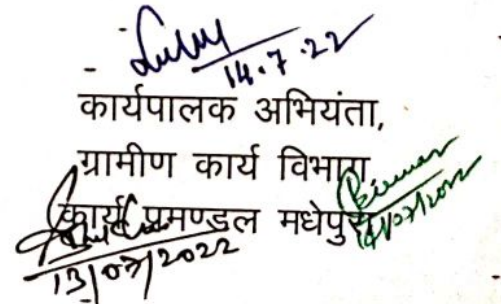 14.7.22
कार्यपालक अभियंता,
ग्रामीण कार्य विभाग,
कार्य प्रमण्डल मधेपुरा
14/07/2022
13/07/2022